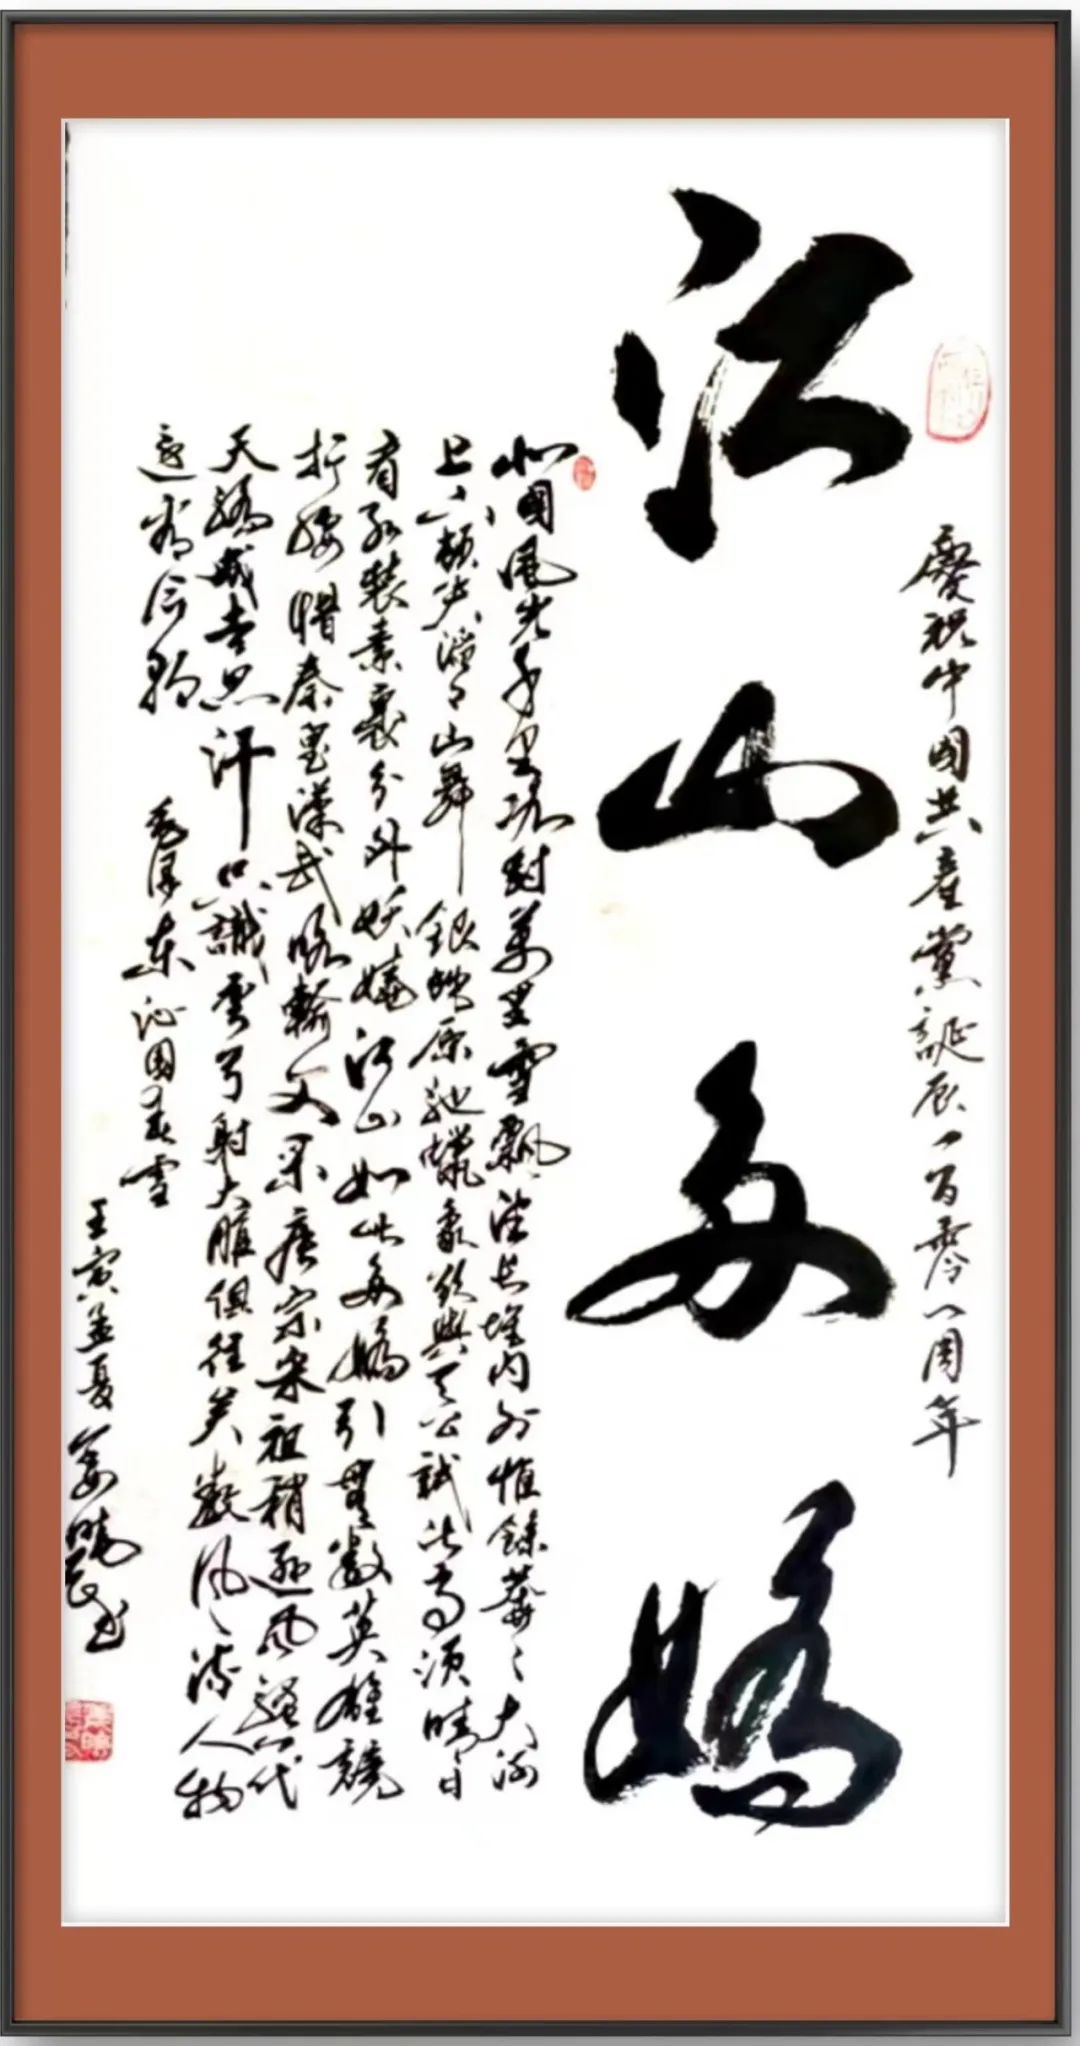 慶祝中國共產黨誕辰一百零一周年
江山多嬌
北國風光千里冰封萬里雪飄望長城內外惟餘莽〻大河
上下頓失滔〻山舞銀蛇原馳蠟象欲與天公試比高須晴日
看紅裝素裹分外妖嬈江山如此多嬌引無數英雄競
折腰惜秦皇漢武略輸文采唐宗宋祖稍遜風騷一代
天驕成吉思汗只識彎弓射大雕俱往矣數风流人物
還看今朝 毛澤東沁園春雪
壬寅孟夏